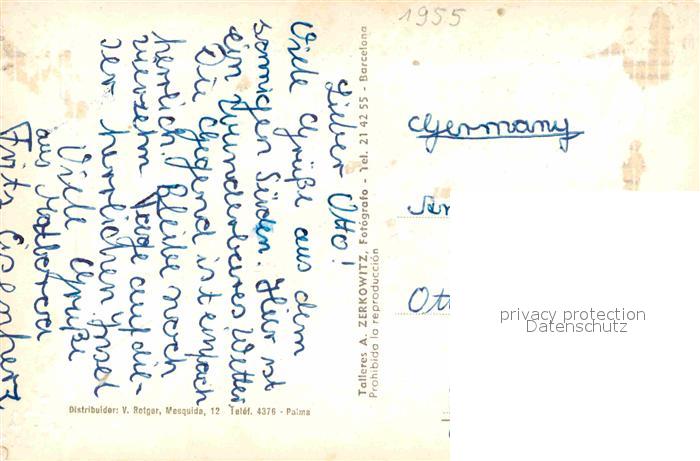 1955
Lieber Otto!
Viele Grüße aus dem
sonnigen Süden. Hier ist
ein wunderbares Wetter,
Die Gegend ist einfach
herrlich. Bleibe noch
vierzehn Tage auf die-
ser herrlichen Insel
Viele Grüße
aus Mallorca
Fritz
Talleres A. ZERKOWITZ, Fotógrafo - Tel. 21 42 55 - Barcelona
Prohibida la reproducción
Distribuidor: V. Rotger, Mesquida, 12 Teléf. 4376 - Palma
Germany
privacy protection
Datenschutz